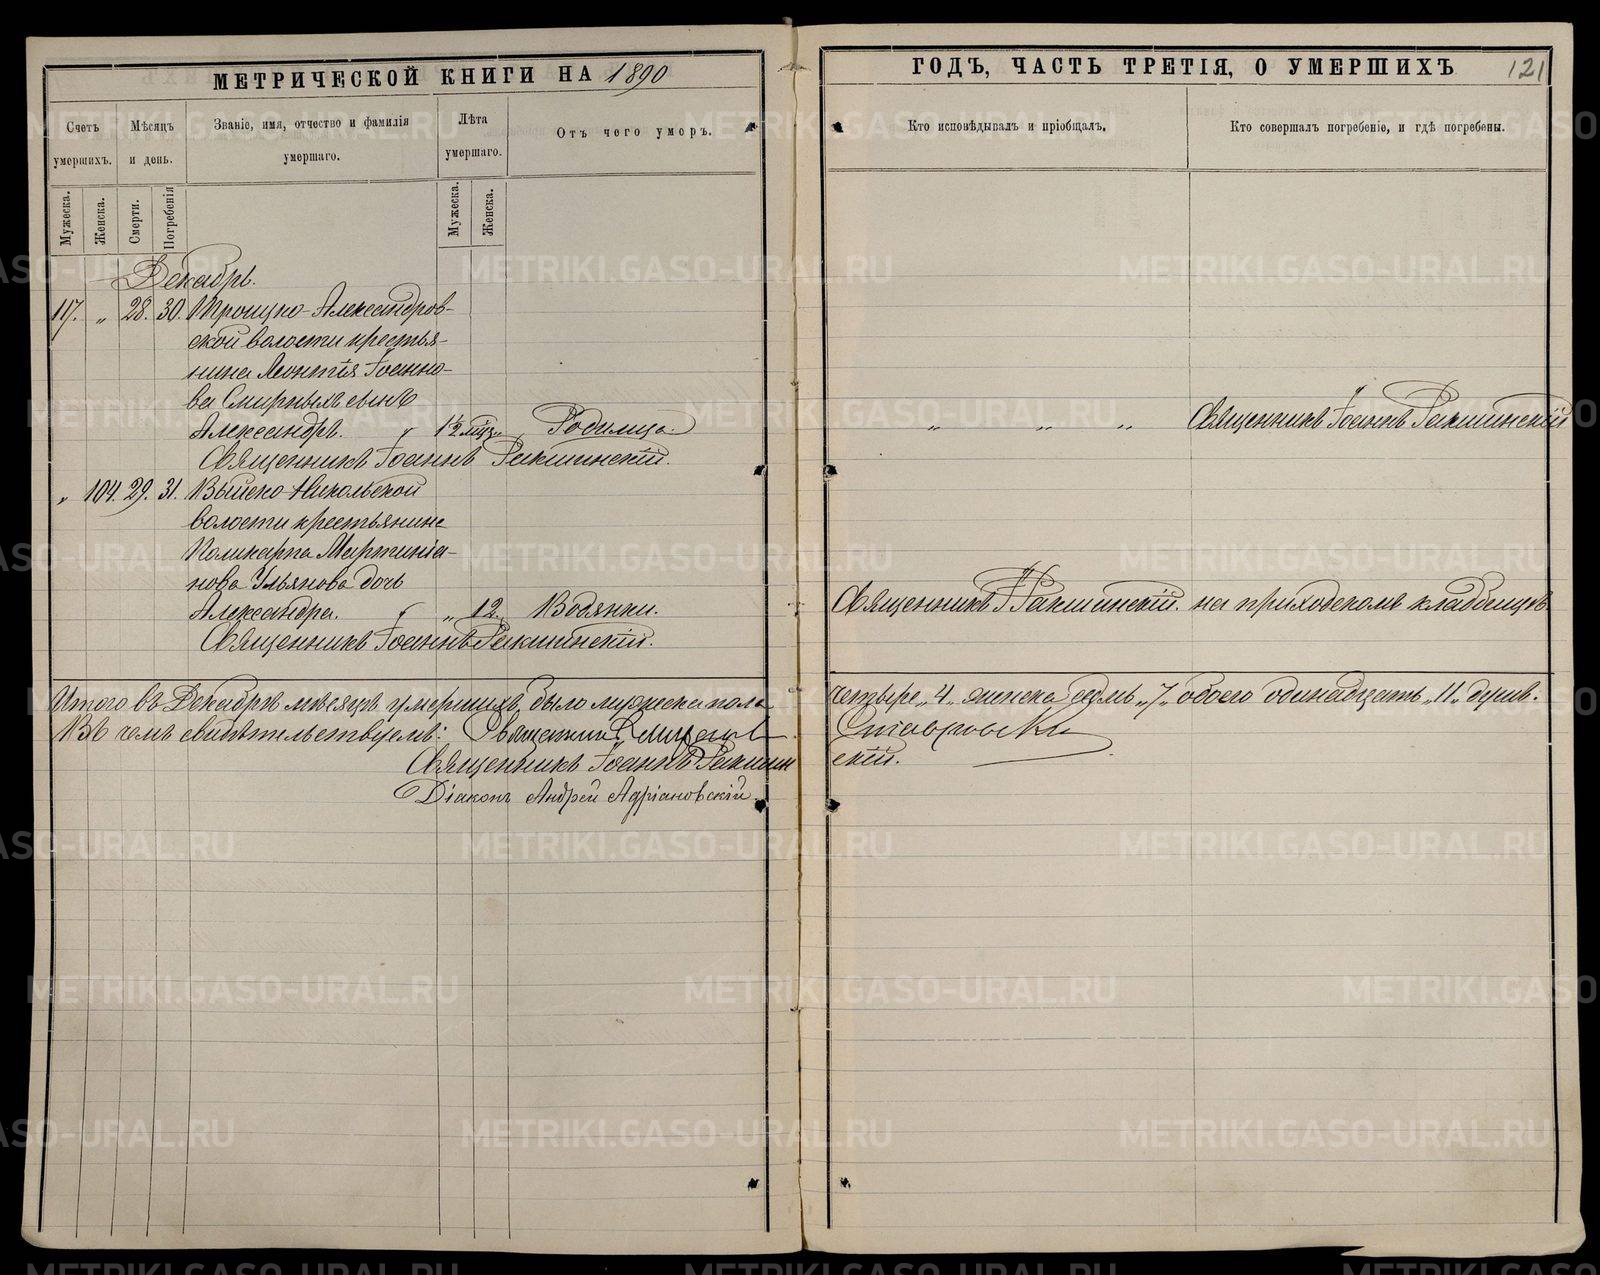 МЕТРИЧЕСКОЙ КНИГИ НА 1890
Счетъ умершихъ.
Мѣсяцъ и день.
Званіе, имя, отчество и фамилія умершаго.
Лѣта умершаго.
Отъ чего умеръ.
Мужеска.
Женска.
Смерти.
Погребенія
Мужеска.
Женска.
Декабрь.
117. „ 28. 30. Троицко-Александров-
ской волости крестья-
нина Леонтія Іоанно-
ва Смирныхъ сынъ
Александръ. 1½ мѣс. Родимца.
Священникъ Іоаннъ Ракшинскій.
„ 104. 29. 31. Выйско-Никольской
волости крестьянина
Поликарпа Мартинiа-
нова Ульянова дочь
Александра. „ 12. Водянки.
Священникъ Іоаннъ Ракшинскій.
Итого въ Декабрѣ мѣсяцѣ умершихъ было мужеска пола
Въ чемъ свидѣтельствуемъ: Священникъ
Священникъ Іоаннъ Ракшин
Діаконъ Андрей Адріановскій.
ГОДЪ, ЧАСТЬ ТРЕТІЯ, О УМЕРШИХЪ 121
Кто исповѣдывалъ и пріобщалъ.
Кто совершалъ погребеніе, и гдѣ погребены.
„ „ „ Священникъ Іоаннъ Ракшинскій
Священникъ І Ракшинскій. на приходскомъ кладбищѣ
четыре „4„ женска седмь „7„ обоего одинадцать „11„ душъ.
скій.
METRIKI.GASO-URAL.RU